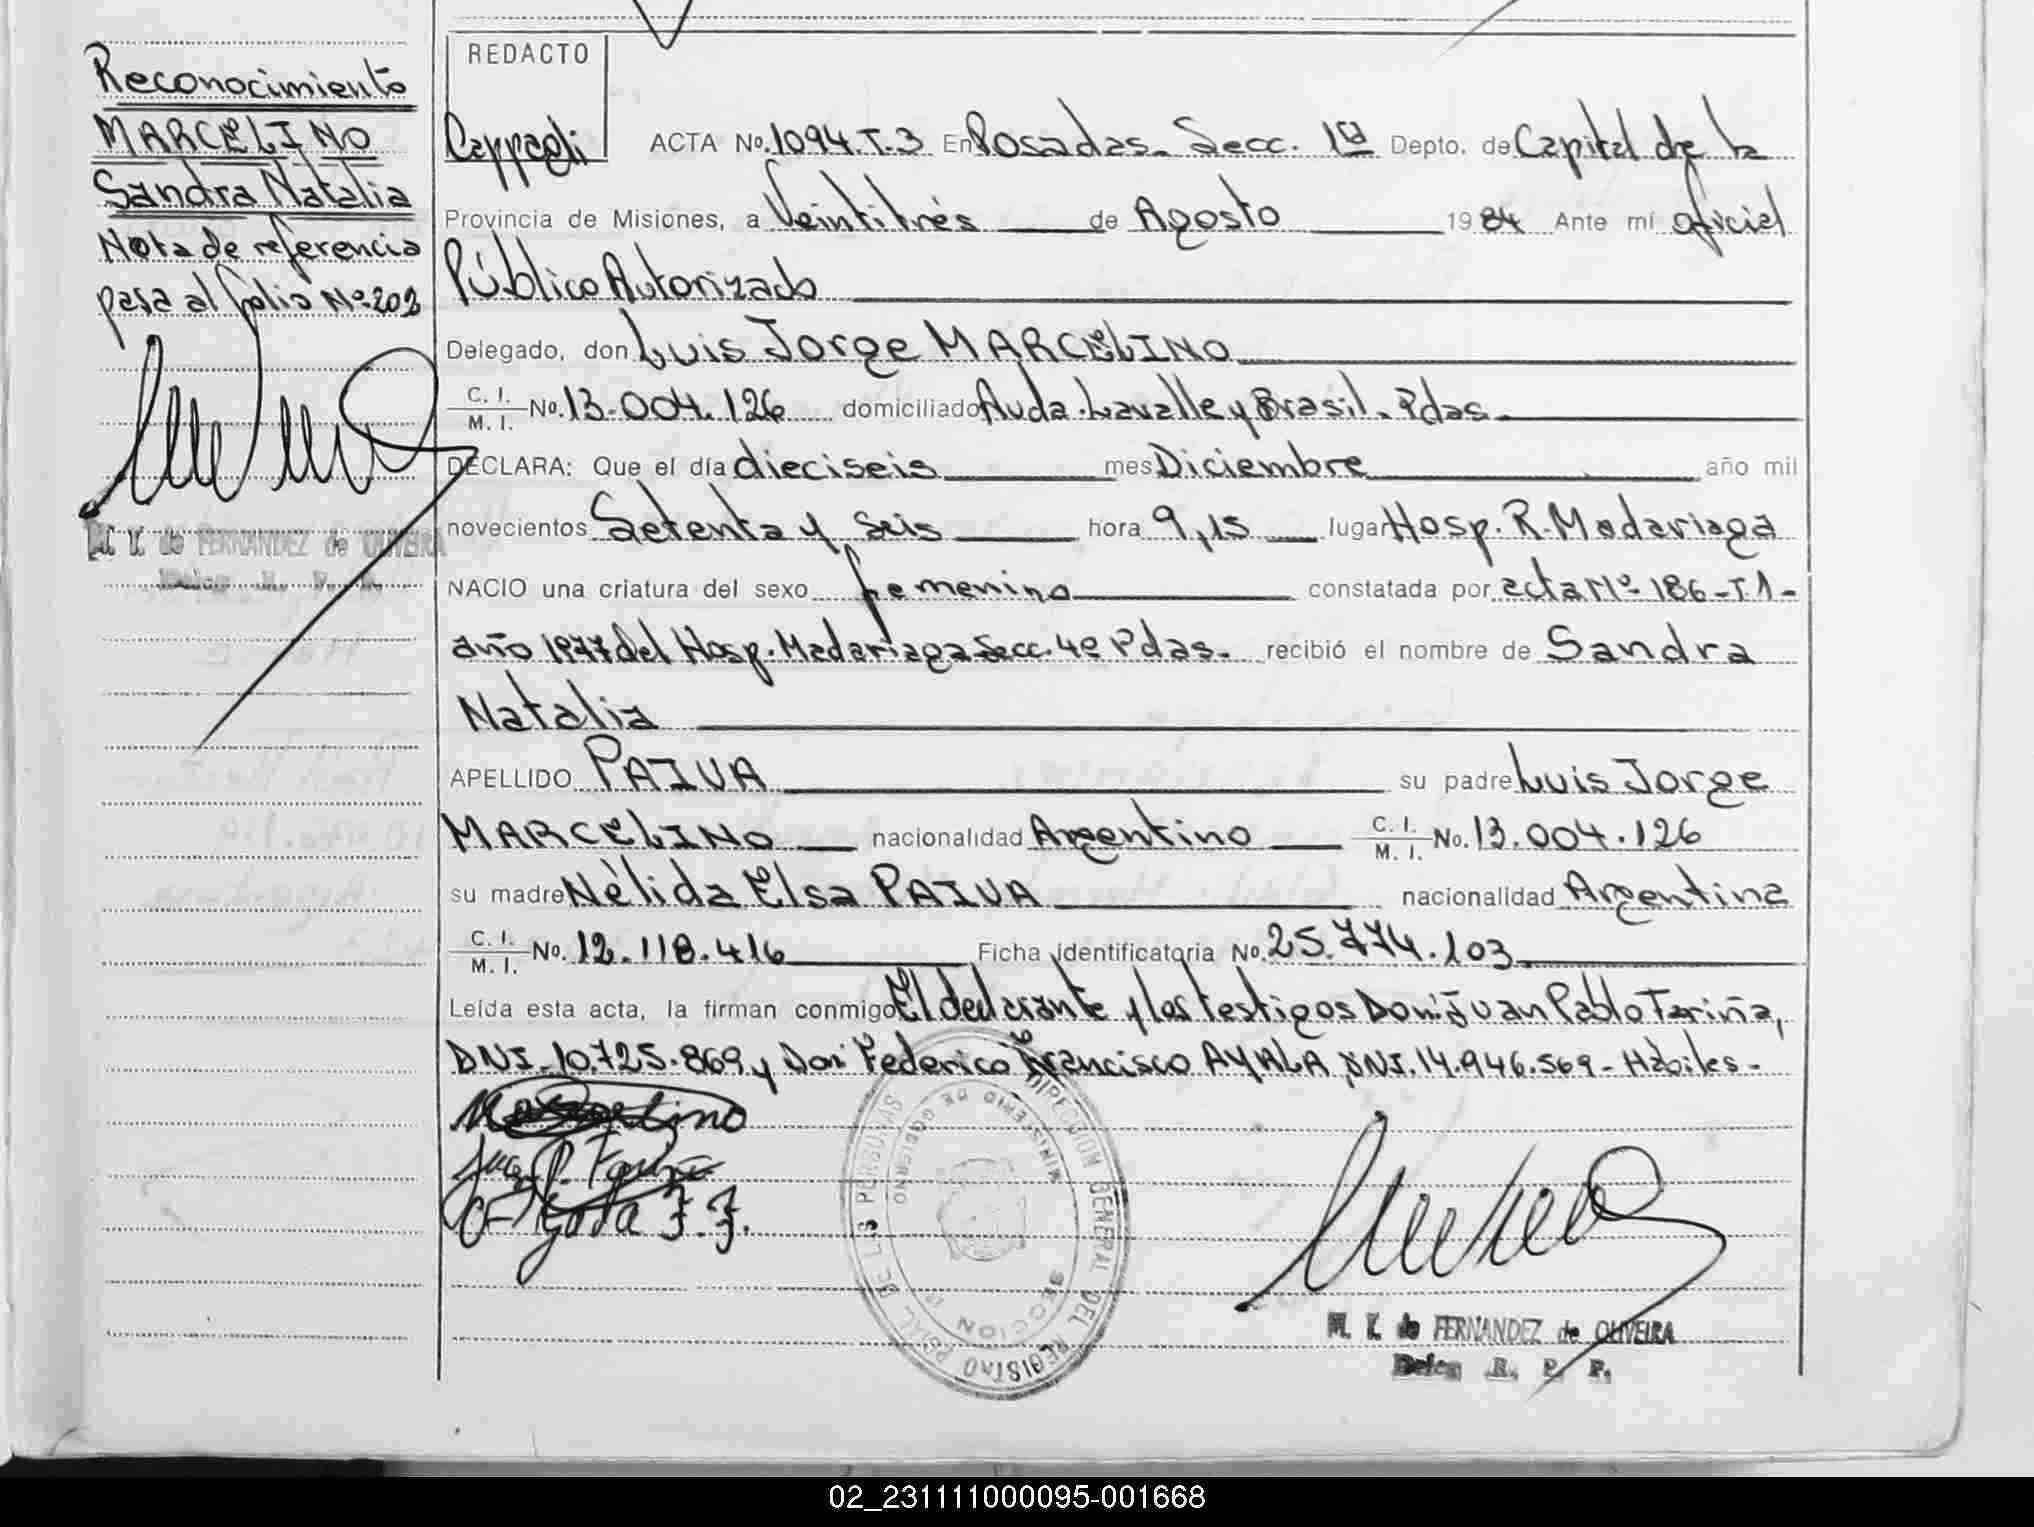 Reconocimiento
MARCELINO
Sandra Natalia
Nota de referencia
pasa al folio Nº 202
M. Y. de FERNANDEZ de OLIVEIRA
Deleg. R. P. P.
REDACTO
Cappagli
ACTA No. 1094.T.3 En Posadas. Secc. 1ª Depto. de Capital de la
Provincia de Misiones, a Veintitrés de Agosto 1984 Ante mí oficial
Público Autorizado
Delegado, don Luis Jorge MARCELINO
C. I. / M. I. No. 13.004.126 domiciliado Avda. Lavalle y Brasil. Pdas.
DECLARA: Que el día dieciseis mes Diciembre año mil
novecientos Setenta y seis hora 9,15 lugar Hosp. R. Madariaga
NACIO una criatura del sexo femenino constatada por acta Nº 186-T1-
año 1977 del Hosp. Madariaga Secc. 4ª Pdas. recibió el nombre de Sandra
Natalia
APELLIDO PAIVA su padre Luis Jorge
MARCELINO nacionalidad Argentino C. I. / M. I. No. 13.004.126
su madre Nélida Elsa PAIVA nacionalidad Argentina
C. I. / M. I. No. 12.118.416 Ficha identificatoria No. 25.774.103
Leída esta acta, la firman conmigo El declarante y los testigos Don: Juan Pablo Fariña,
DNI. 10.725.869 y Don: Federico Francisco AYALA, DNI. 14.946.569 - Hábiles.
Marcelino
Juan P. Fariña
DIRECCION GENERAL DEL REGISTRO PCIAL. DE LAS PERSONAS
MINISTERIO DE GOBIERNO
SECCION 1ª
M. Y. de FERNANDEZ de OLIVEIRA
Deleg. R. P. P.
02_231111000095-001668